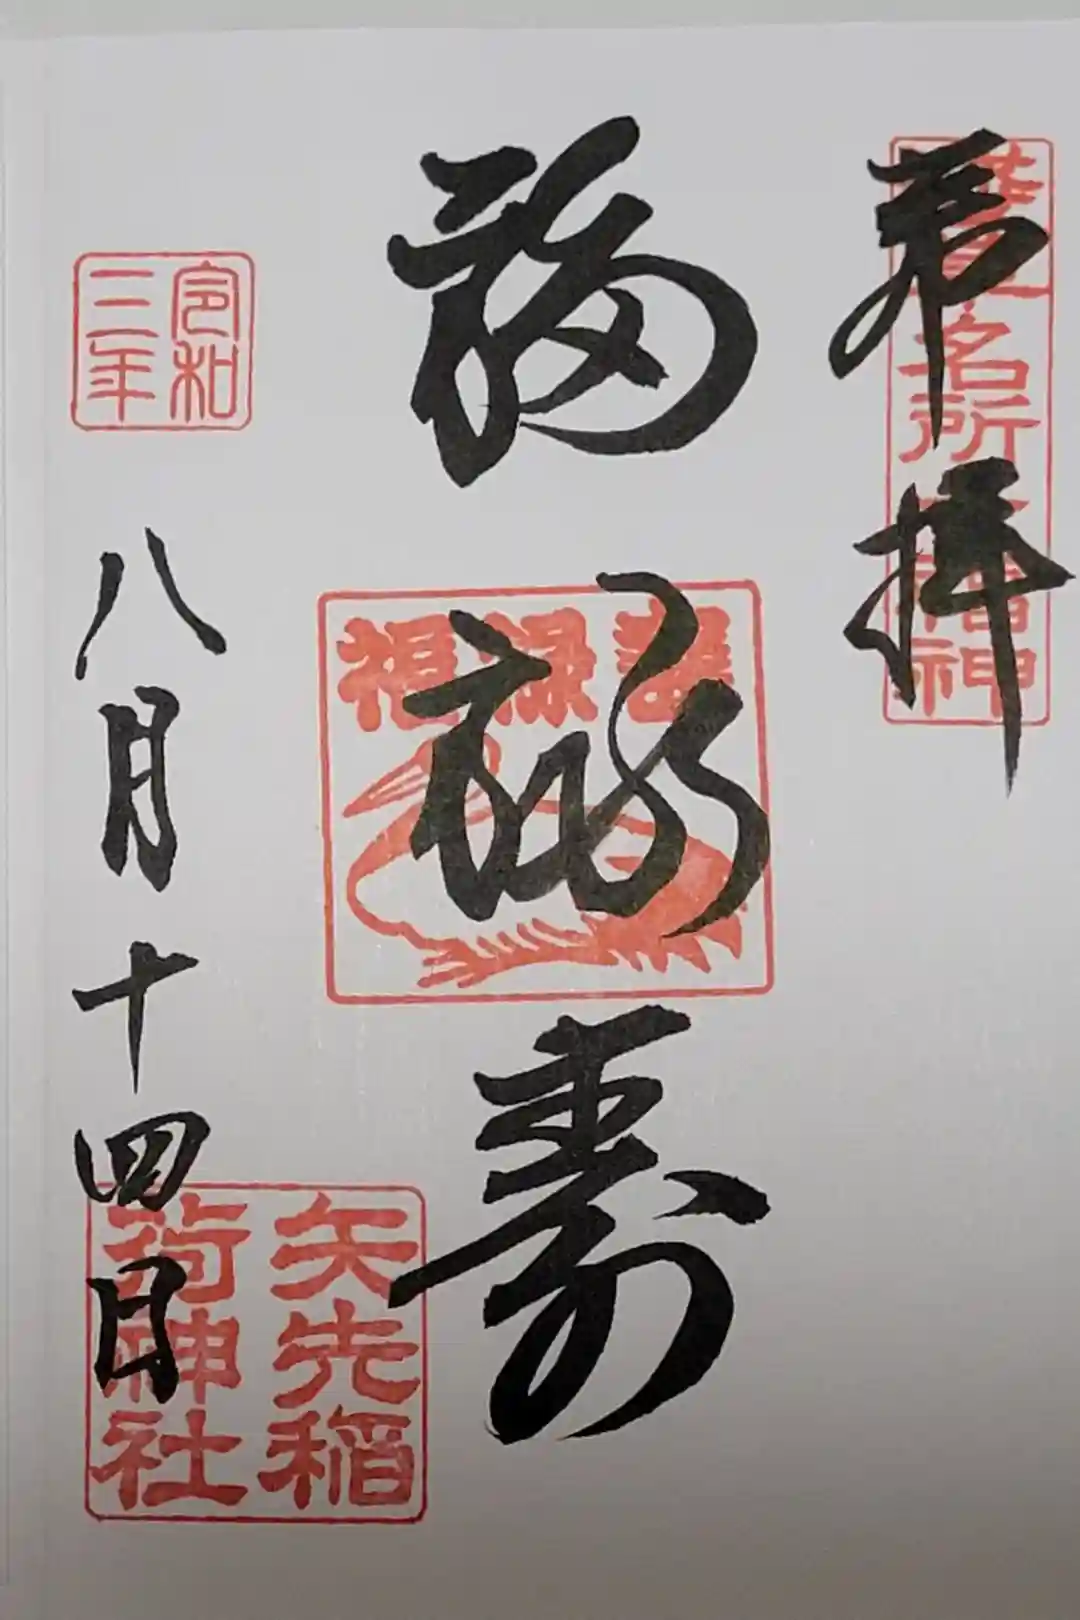 奉拝
浅草名所七福神
福禄寿
福禄寿
令和
三年
八月十四日
矢先稲
荷神社